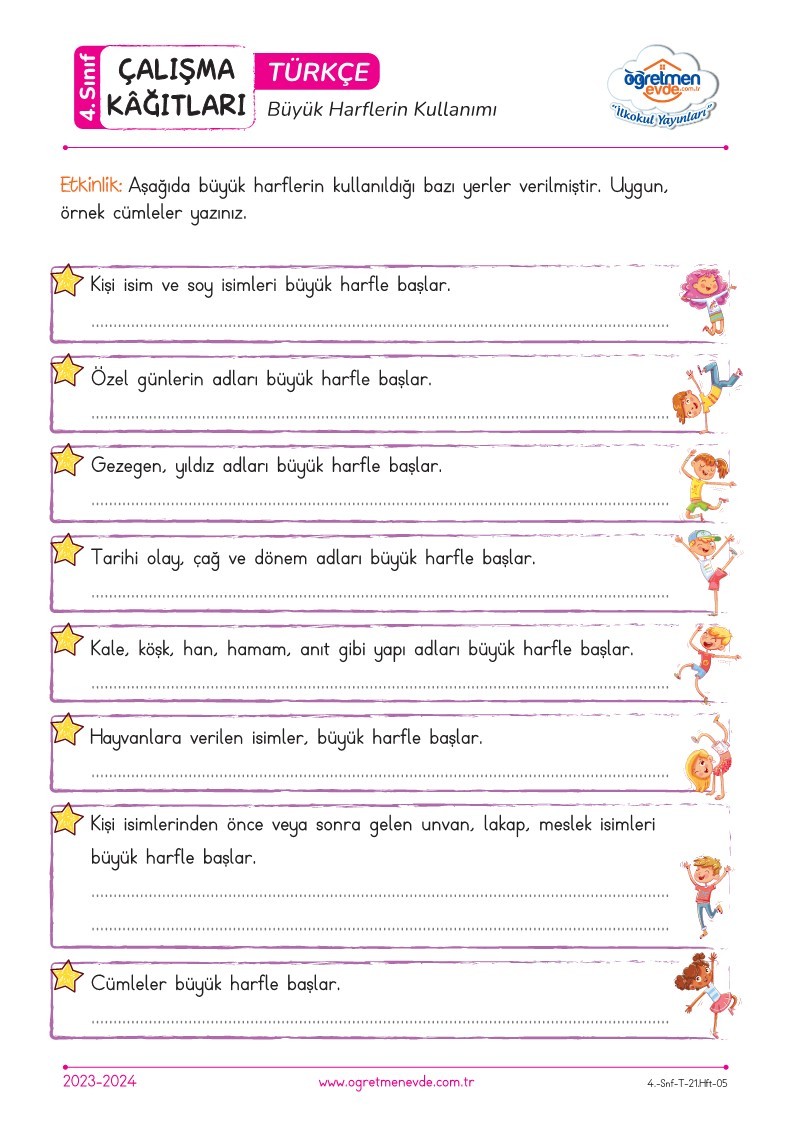 4. Sınıf
ÇALIŞMA
KÂĞITLARI
TÜRKÇE
Büyük Harflerin Kullanımı
öğretmen
evde.com.tr
"İlkokul Yayınları"
Etkinlik: Aşağıda büyük harflerin kullanıldığı bazı yerler verilmiştir. Uygun,
örnek cümleler yazınız.
Kişi isim ve soy isimleri büyük harfle başlar.
Özel günlerin adları büyük harfle başlar.
Gezegen, yıldız adları büyük harfle başlar.
Tarihi olay, çağ ve dönem adları büyük harfle başlar.
Kale, köşk, han, hamam, anıt gibi yapı adları büyük harfle başlar.
Hayvanlara verilen isimler, büyük harfle başlar.
Kişi isimlerinden önce veya sonra gelen unvan, lakap, meslek isimleri
büyük harfle başlar.
Cümleler büyük harfle başlar.
2023-2024
www.ogretmenevde.com.tr
4.-Snf-T-21.Hft-05